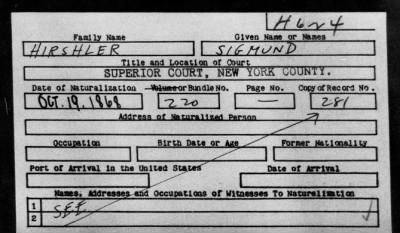 H624
Family Name Given Name or Names
HIRSHLER SIGMUND
Title and Location of Court
SUPERIOR COURT, NEW YORK COUNTY.
Date of Naturalization Volume or Bundle No. Page No. Copy of Record No.
OCT. 19. 1868 220 — 281
Address of Naturalized Person
Occupation Birth Date or Age Former Nationality
Port of Arrival in the United States Date of Arrival
Names, Addresses and Occupations of Witnesses To Naturalization
1 SEE
2